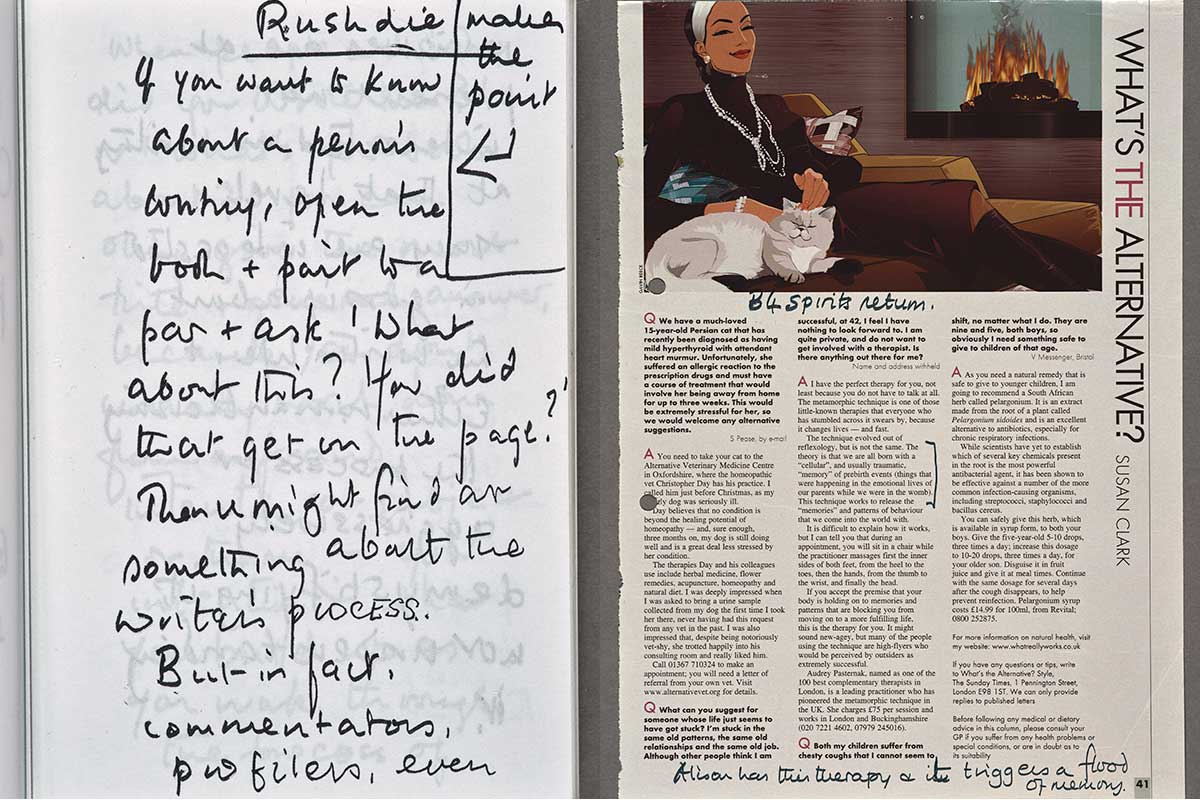 Rushdie
makes
the
point
If you want to know
about a person's
writing, open the
book + point to a
par + ask 'What
about this? How did
that get on the page?'
Then u might find
something about the
writer's process.
But - in fact,
commentators,
profilers, even
WHAT'S THE ALTERNATIVE? SUSAN CLARK
B4 Spirits return.
Q We have a much-loved
15-year-old Persian cat that has
recently been diagnosed as having
mild hyperthyroid with attendant
heart murmur. Unfortunately, she
suffered an allergic reaction to the
prescription drugs and must have
a course of treatment that would
involve her being away from home
for up to three weeks. This would
be extremely stressful for her, so
we would welcome any alternative
suggestions.
S Pease, by e-mail
A You need to take your cat to the
Alternative Veterinary Medicine Centre
in Oxfordshire, where the homeopathic
vet Christopher Day has his practice. I
called him just before Christmas, as my
dog was seriously ill.
Day believes that no condition is
beyond the healing potential of
homeopathy — and, sure enough,
three months on, my dog is still doing
well and is a great deal less stressed by
her condition.
The therapies Day and his colleagues
use include herbal medicine, flower
remedies, acupuncture, homeopathy and
natural diet. I was deeply impressed when
I was asked to bring a urine sample
collected from my dog the first time I took
her there, never having had this request
from any vet in the past. I was also
impressed that, despite being notoriously
vet-shy, she trotted happily into his
consulting room and really liked him.
Call 01367 710324 to make an
appointment; you will need a letter of
referral from your own vet. Visit
www.alternativevet.org for details.
Q What can you suggest for
someone whose life just seems to
have got stuck? I'm stuck in the
same old patterns, the same old
relationships and the same old job.
Although other people think I am
successful, at 42, I feel I have
nothing to look forward to. I am
quite private, and do not want to
get involved with a therapist. Is
there anything out there for me?
Name and address withheld
A I have the perfect therapy for you, not
least because you do not have to talk at all.
The metamorphic technique is one of those
little-known therapies that everyone who
has stumbled across it swears by, because
it changes lives — and fast.
The technique evolved out of
reflexology, but is not the same. The
theory is that we are all born with a
"cellular", and usually traumatic,
"memory" of prebirth events (things that
were happening in the emotional lives of
our parents while we were in the womb).
This technique works to release the
"memories" and patterns of behaviour
that we come into the world with.
It is difficult to explain how it works,
but I can tell you that during an
appointment, you will sit in a chair while
the practitioner massages first the inner
sides of both feet, from the heel to the
toes, then the hands, from the thumb to
the wrist, and finally the head.
If you accept the premise that your
body is holding on to memories and
patterns that are blocking you from
moving on to a more fulfilling life,
this is the therapy for you. It might
sound new-agey, but many of the people
using the technique are high-flyers who
would be perceived by outsiders as
extremely successful.
Audrey Pasternak, named as one of the
100 best complementary therapists in
London, is a leading practitioner who has
pioneered the metamorphic technique in
the UK. She charges £75 per session and
works in London and Buckinghamshire
(020 7221 4602, 07979 245016).
Q Both my children suffer from
chesty coughs that I cannot seem to
shift, no matter what I do. They are
nine and five, both boys, so
obviously I need something safe to
give to children of that age.
V Messenger, Bristol
A As you need a natural remedy that is
safe to give to younger children, I am
going to recommend a South African
herb called pelargonium. It is an extract
made from the root of a plant called
Pelargonium sidoides and is an excellent
alternative to antibiotics, especially for
chronic respiratory infections.
While scientists have yet to establish
which of several key chemicals present
in the root is the most powerful
antibacterial agent, it has been shown to
be effective against a number of the more
common infection-causing organisms,
including streptococci, staphylococci and
bacillus cereus.
You can safely give this herb, which
is available in syrup form, to both your
boys. Give the five-year-old 5-10 drops,
three times a day; increase this dosage
to 10-20 drops, three times a day, for
your older son. Disguise it in fruit
juice and give it at meal times. Continue
with the same dosage for several days
after the cough disappears, to help
prevent reinfection. Pelargonium syrup
costs £14.99 for 100ml, from Revital;
0800 252875.
For more information on natural health, visit
my website: www.whatreallyworks.co.uk
If you have any questions or tips, write
to What's the Alternative? Style,
The Sunday Times, 1 Pennington Street,
London E98 1ST. We can only provide
replies to published letters
Before following any medical or dietary
advice in this column, please consult your
GP if you suffer from any health problems or
special conditions, or are in doubt as to
its suitability
Alison has this therapy & it triggers a flood
of memory.
41